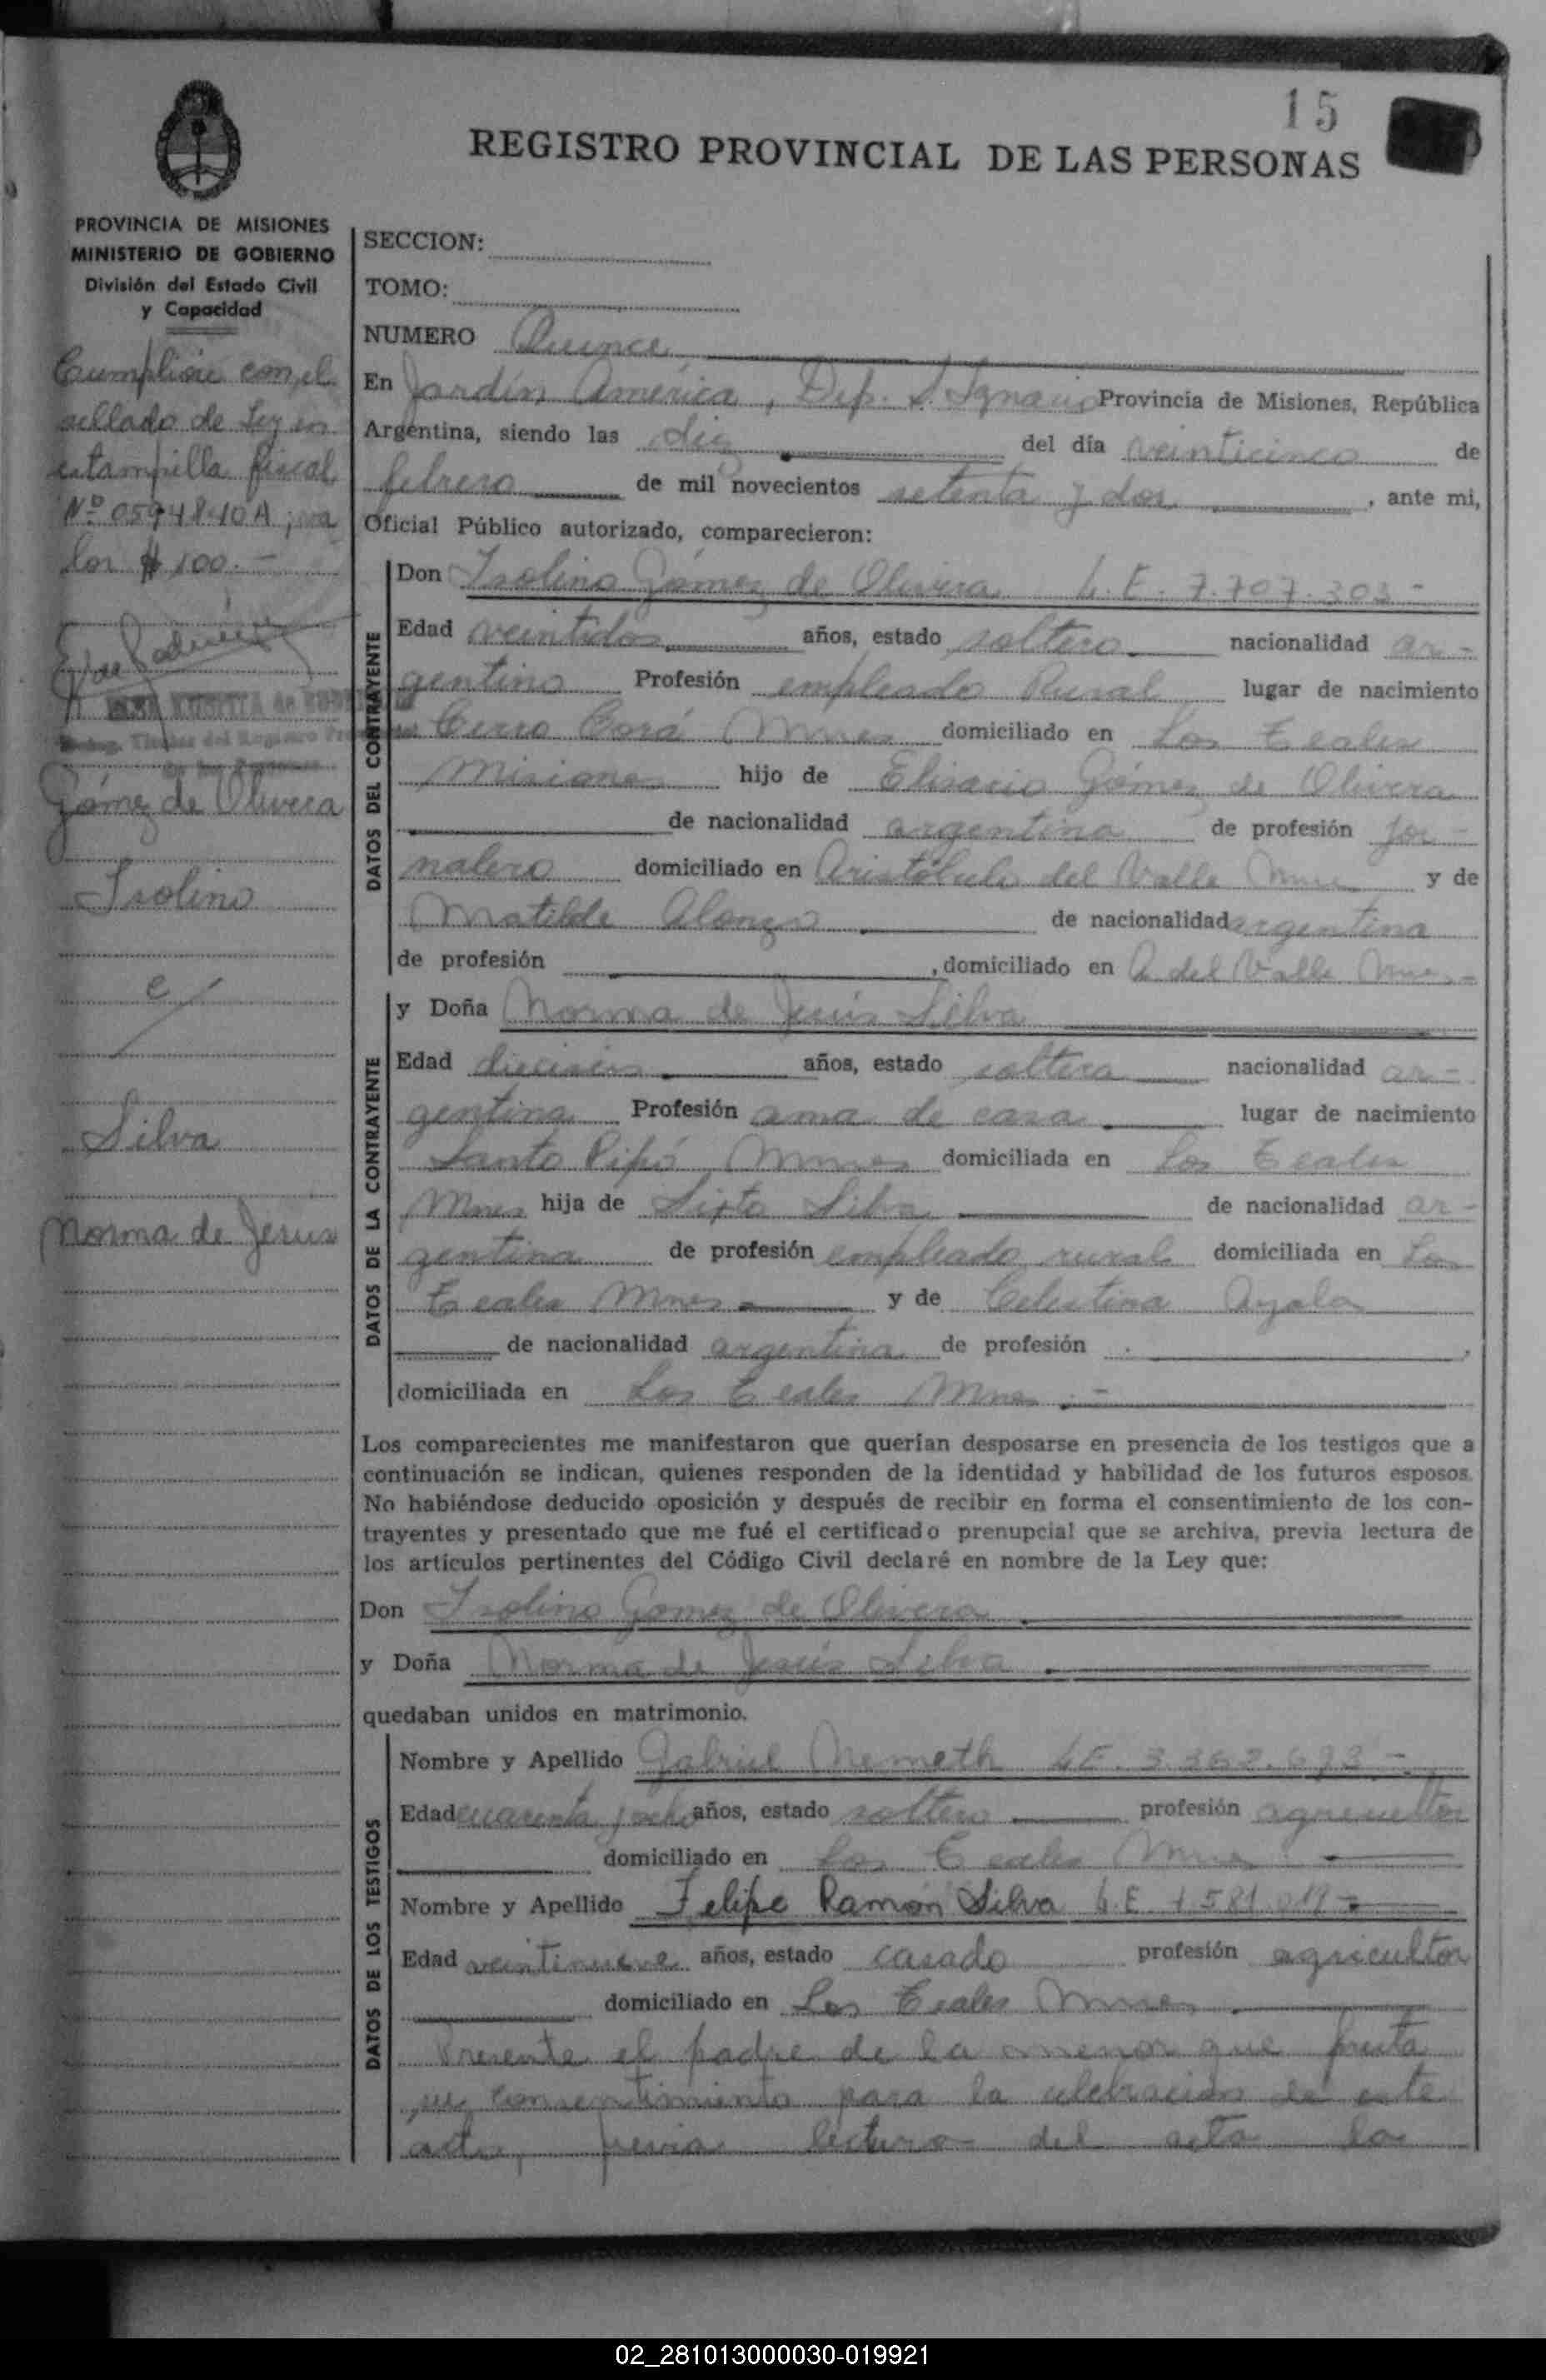 15
REGISTRO PROVINCIAL DE LAS PERSONAS
PROVINCIA DE MISIONES
MINISTERIO DE GOBIERNO
División del Estado Civil
y Capacidad
Cumplióse con el
sellado de Ley en
estampilla fiscal
Nº 0594840 A; va
lor $ 100.-
Gómez de Olivera
Isolino
c/
Silva
Norma de Jesús
SECCION:
TOMO:
NUMERO Quince
En Jardín América, Dep. S. Ignacio Provincia de Misiones, República
Argentina, siendo las diez del día veinticinco de
febrero de mil novecientos setenta y dos, ante mi,
Oficial Público autorizado, comparecieron:
DATOS DEL CONTRAYENTE
Don Isolino Gómez de Olivera L. E. 7.707.303 -
Edad veintidos años, estado soltero nacionalidad ar-
gentino Profesión empleado Rural lugar de nacimiento
Cerro Corá Mnes domiciliado en Los Teales
Misiones hijo de Elisacio Gómez de Olivera
de nacionalidad argentina de profesión jor-
nalero domiciliado en Aristóbulo del Valle Mnes y de
Matilde Alonzo de nacionalidad argentina
de profesión , domiciliado en A. del Valle Mnes -
DATOS DE LA CONTRAYENTE
y Doña Norma de Jesús Silva
Edad dieciseis años, estado soltera nacionalidad ar-
gentina Profesión ama de casa lugar de nacimiento
Santo Pipó Mnes domiciliada en Los Teales
Mnes hija de Sixto Silva de nacionalidad ar-
gentina de profesión empleado rural domiciliada en Los
Teales Mnes y de Celestina Ayala
de nacionalidad argentina de profesión
domiciliada en Los Teales Mnes . -
Los comparecientes me manifestaron que querían desposarse en presencia de los testigos que a
continuación se indican, quienes responden de la identidad y habilidad de los futuros esposos.
No habiéndose deducido oposición y después de recibir en forma el consentimiento de los con-
trayentes y presentado que me fué el certificado prenupcial que se archiva, previa lectura de
los artículos pertinentes del Código Civil declaré en nombre de la Ley que:
Don Isolino Gomez de Olivera
y Doña Norma de Jesús Silva
quedaban unidos en matrimonio.
DATOS DE LOS TESTIGOS
Nombre y Apellido Gabriel Nemeth L.E. 3.362.693 -
Edad cuarenta y ocho años, estado soltero profesión agricultor
domiciliado en Los Teales Mnes
Nombre y Apellido Felipe Ramón Silva L.E.
Edad veintinueve años, estado casado profesión agricultor
domiciliado en Los Teales Mnes
Presente el padre de la menor que presta
su consentimiento para la celebración de este
acto, previa lectura del acta la
02_281013000030-019921